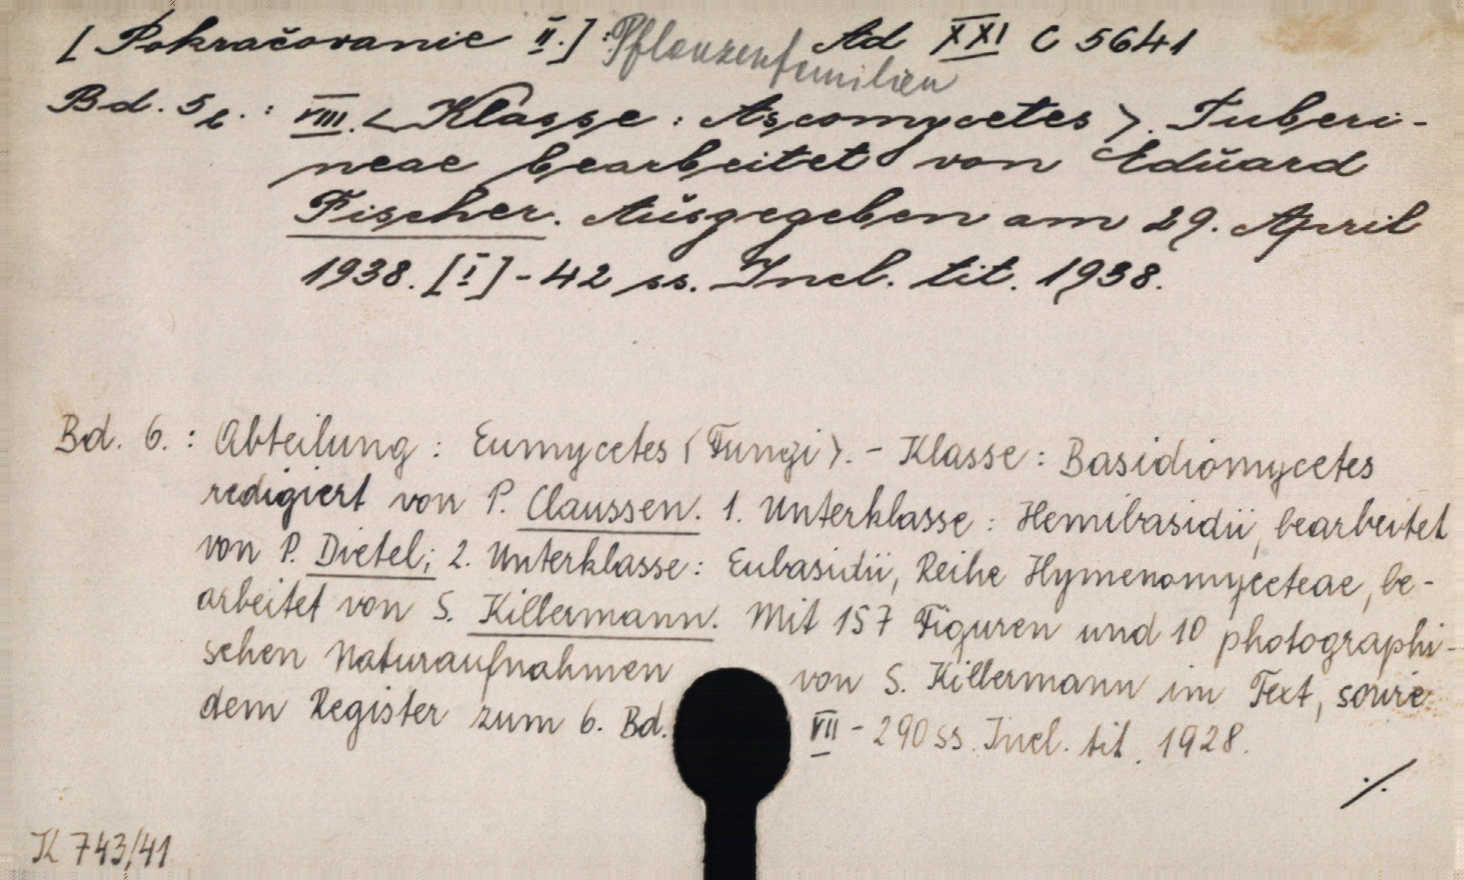 [Pokračovanie II.] : Pflanzenfamilien Ad XXI C 5641
Bd. 5b. : VIII. <Klasse: Ascomycetes>. Tuberi-
neae bearbeitet von Eduard
Fischer. Ausgegeben am 29. April
1938. [I] - 42 ss. Incl. tit. 1938.
Bd. 6. : Abteilung: Eumycetes <Fungi>. - Klasse: Basidiomycetes
redigiert von P. Claussen. 1. Unterklasse: Hemibasidii, bearbeitet
von P. Dietel; 2. Unterklasse: Eubasidii, Reihe Hymenomyceteae, be-
arbeitet von S. Killermann. Mit 157 Figuren und 10 photographi-
schen Naturaufnahmen von S. Killermann im Text, sowie
dem Register zum 6. Bd. VII - 290 ss. Incl. tit. 1928.
./.
K 743/41